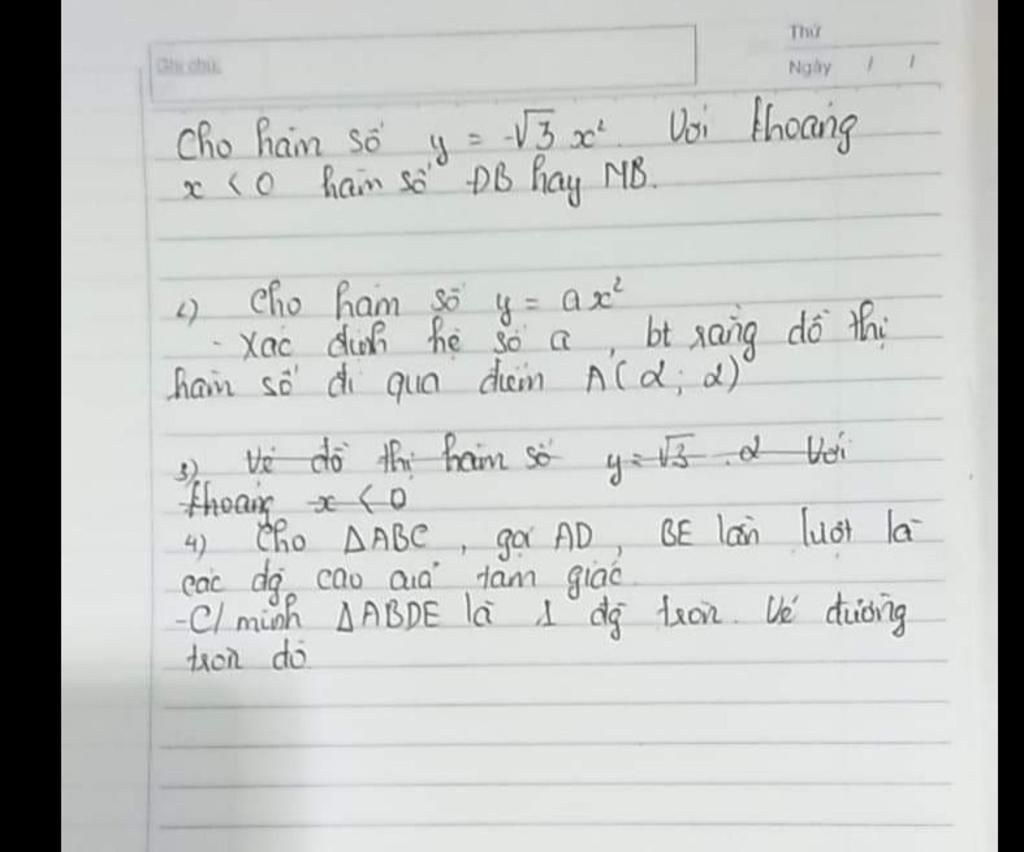 Thứ
Ghi chú:
Ngày / /
Cho hàm số y = -√3 x². Với khoảng
x < 0 hàm số ĐB hay NB.
2) Cho hàm số y = ax²
- Xác định hệ số a, bt rằng đồ thị
hàm số đi qua điểm A(2; 2)
3) Vẽ đồ thị hàm số y = √3 . 2 Với
khoảng x < 0
4) Cho ΔABC, gọi AD, BE lần lượt là
các đg cao của tam giác
- C/minh ΔABDE là 1 đg tròn. Vẽ đường
tròn đó